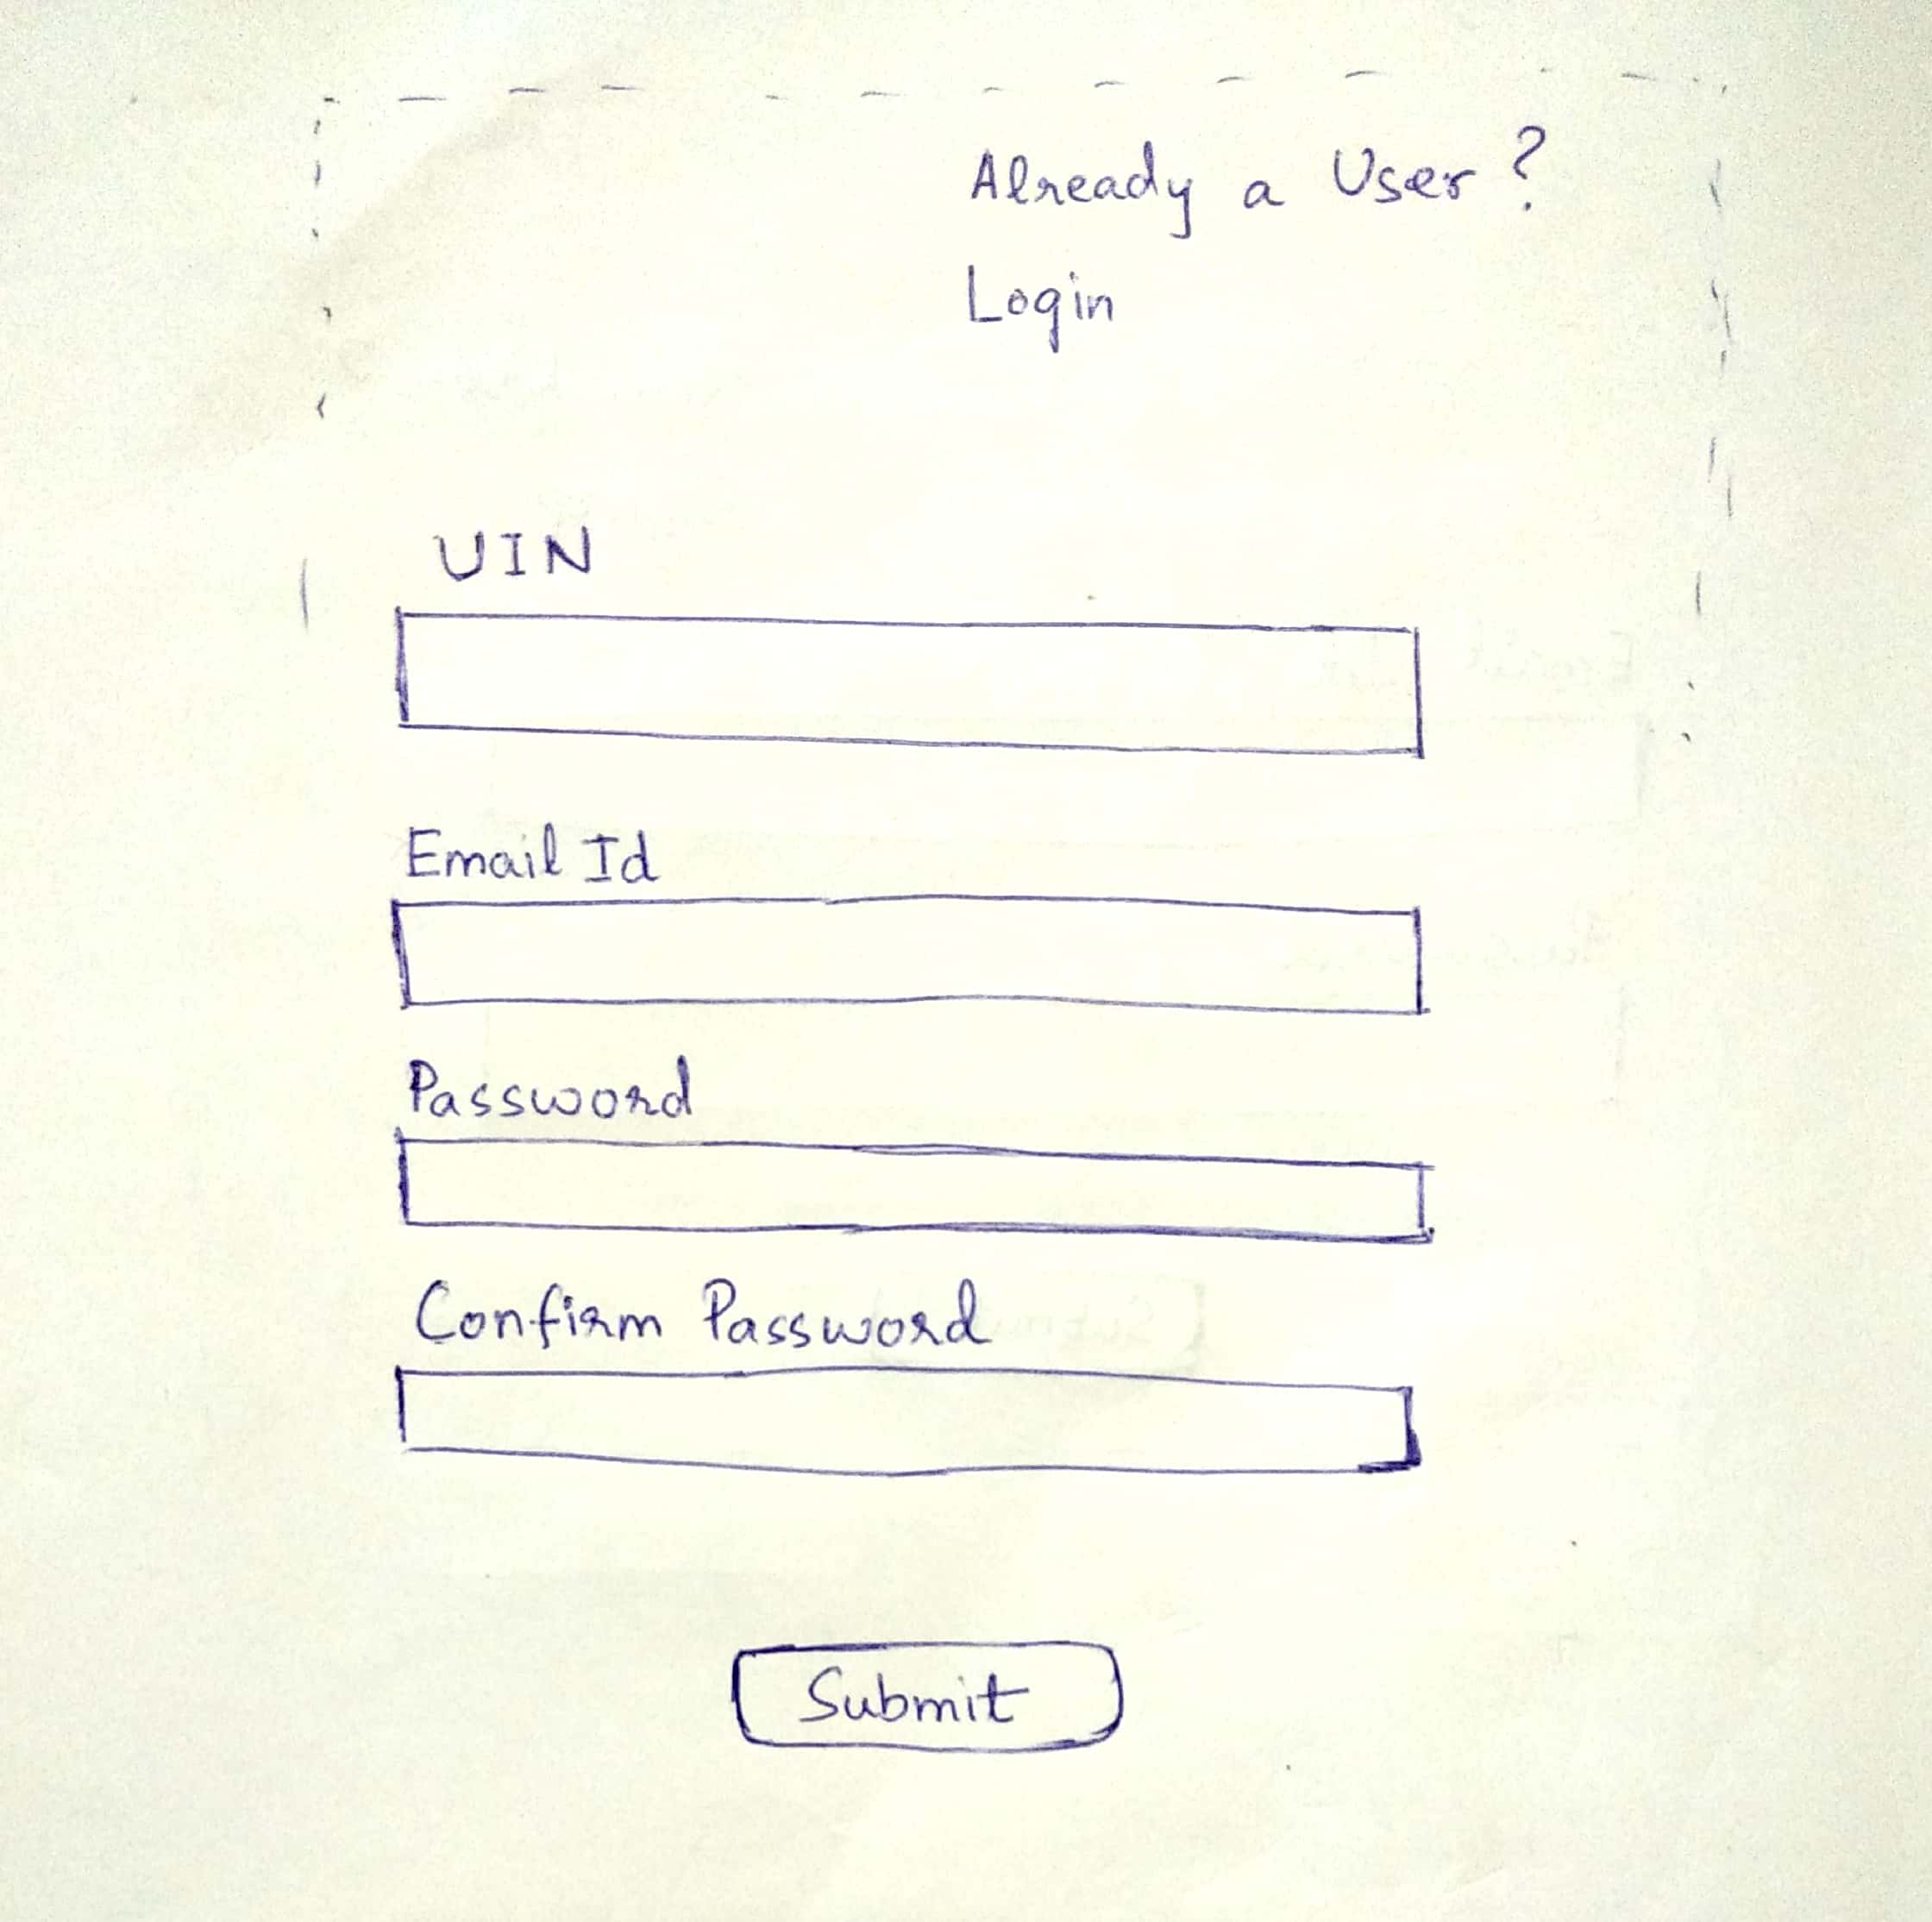 Already a User ?
Login
UIN
Email Id
Password
Confirm Password
Submit